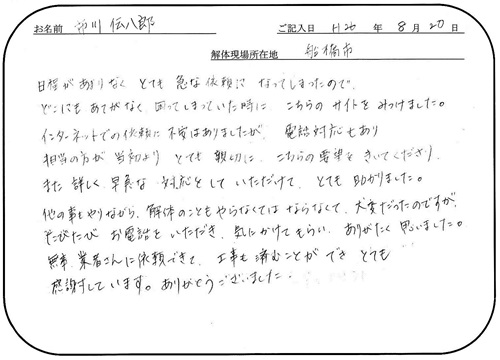 お名前 市川 伝八郎 ご記入日 H26 年 8 月 20 日
解体現場所在地 船橋市
日程があまりなく とても 急な依頼に なってしまったので、
どこにも あてがなく、困ってしまっていた時に、こちらの サイトを みつけました。
インターネットでの依頼に 不安はありましたが、電話対応もあり
担当の方が 当初より とても 親切に、こちらの要望を きいてくださり、
また 詳しく、早急な 対応をして いただけて、とても 助かりました。
他の事もやりながら、解体のことも やらなくては ならなくて、大変だったのですが、
たびたび お電話を いただき、気にかけてもらい、ありがたく 思いました。
無事、業者さんに依頼できて、工事も 済むことが でき とても
感謝しています。ありがとうございました。